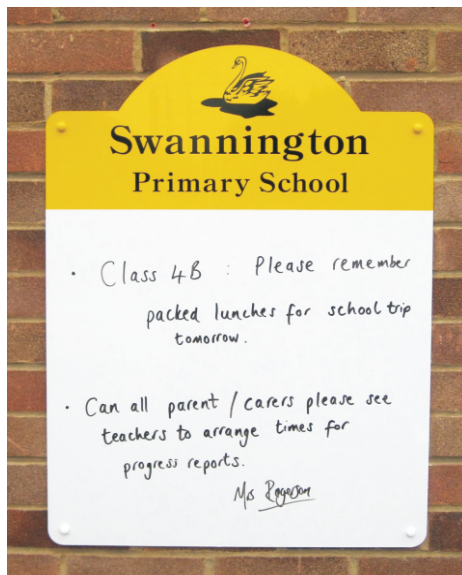 Swannington
Primary School
• Class 4B : Please remember
packed lunches for school trip
tomorrow.
• Can all parent / carers please see
teachers to arrange times for
progress reports.
Mrs Rogerson